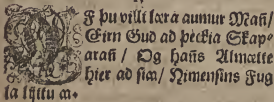 Ef þu villt læra aumur Mañ/
Eirn Gud ad þeckia Skap⸗
arañ / Og hañs Almætte
hier ad siꜳ/ Nimensins Fug
la lijttu ꜳ⸱